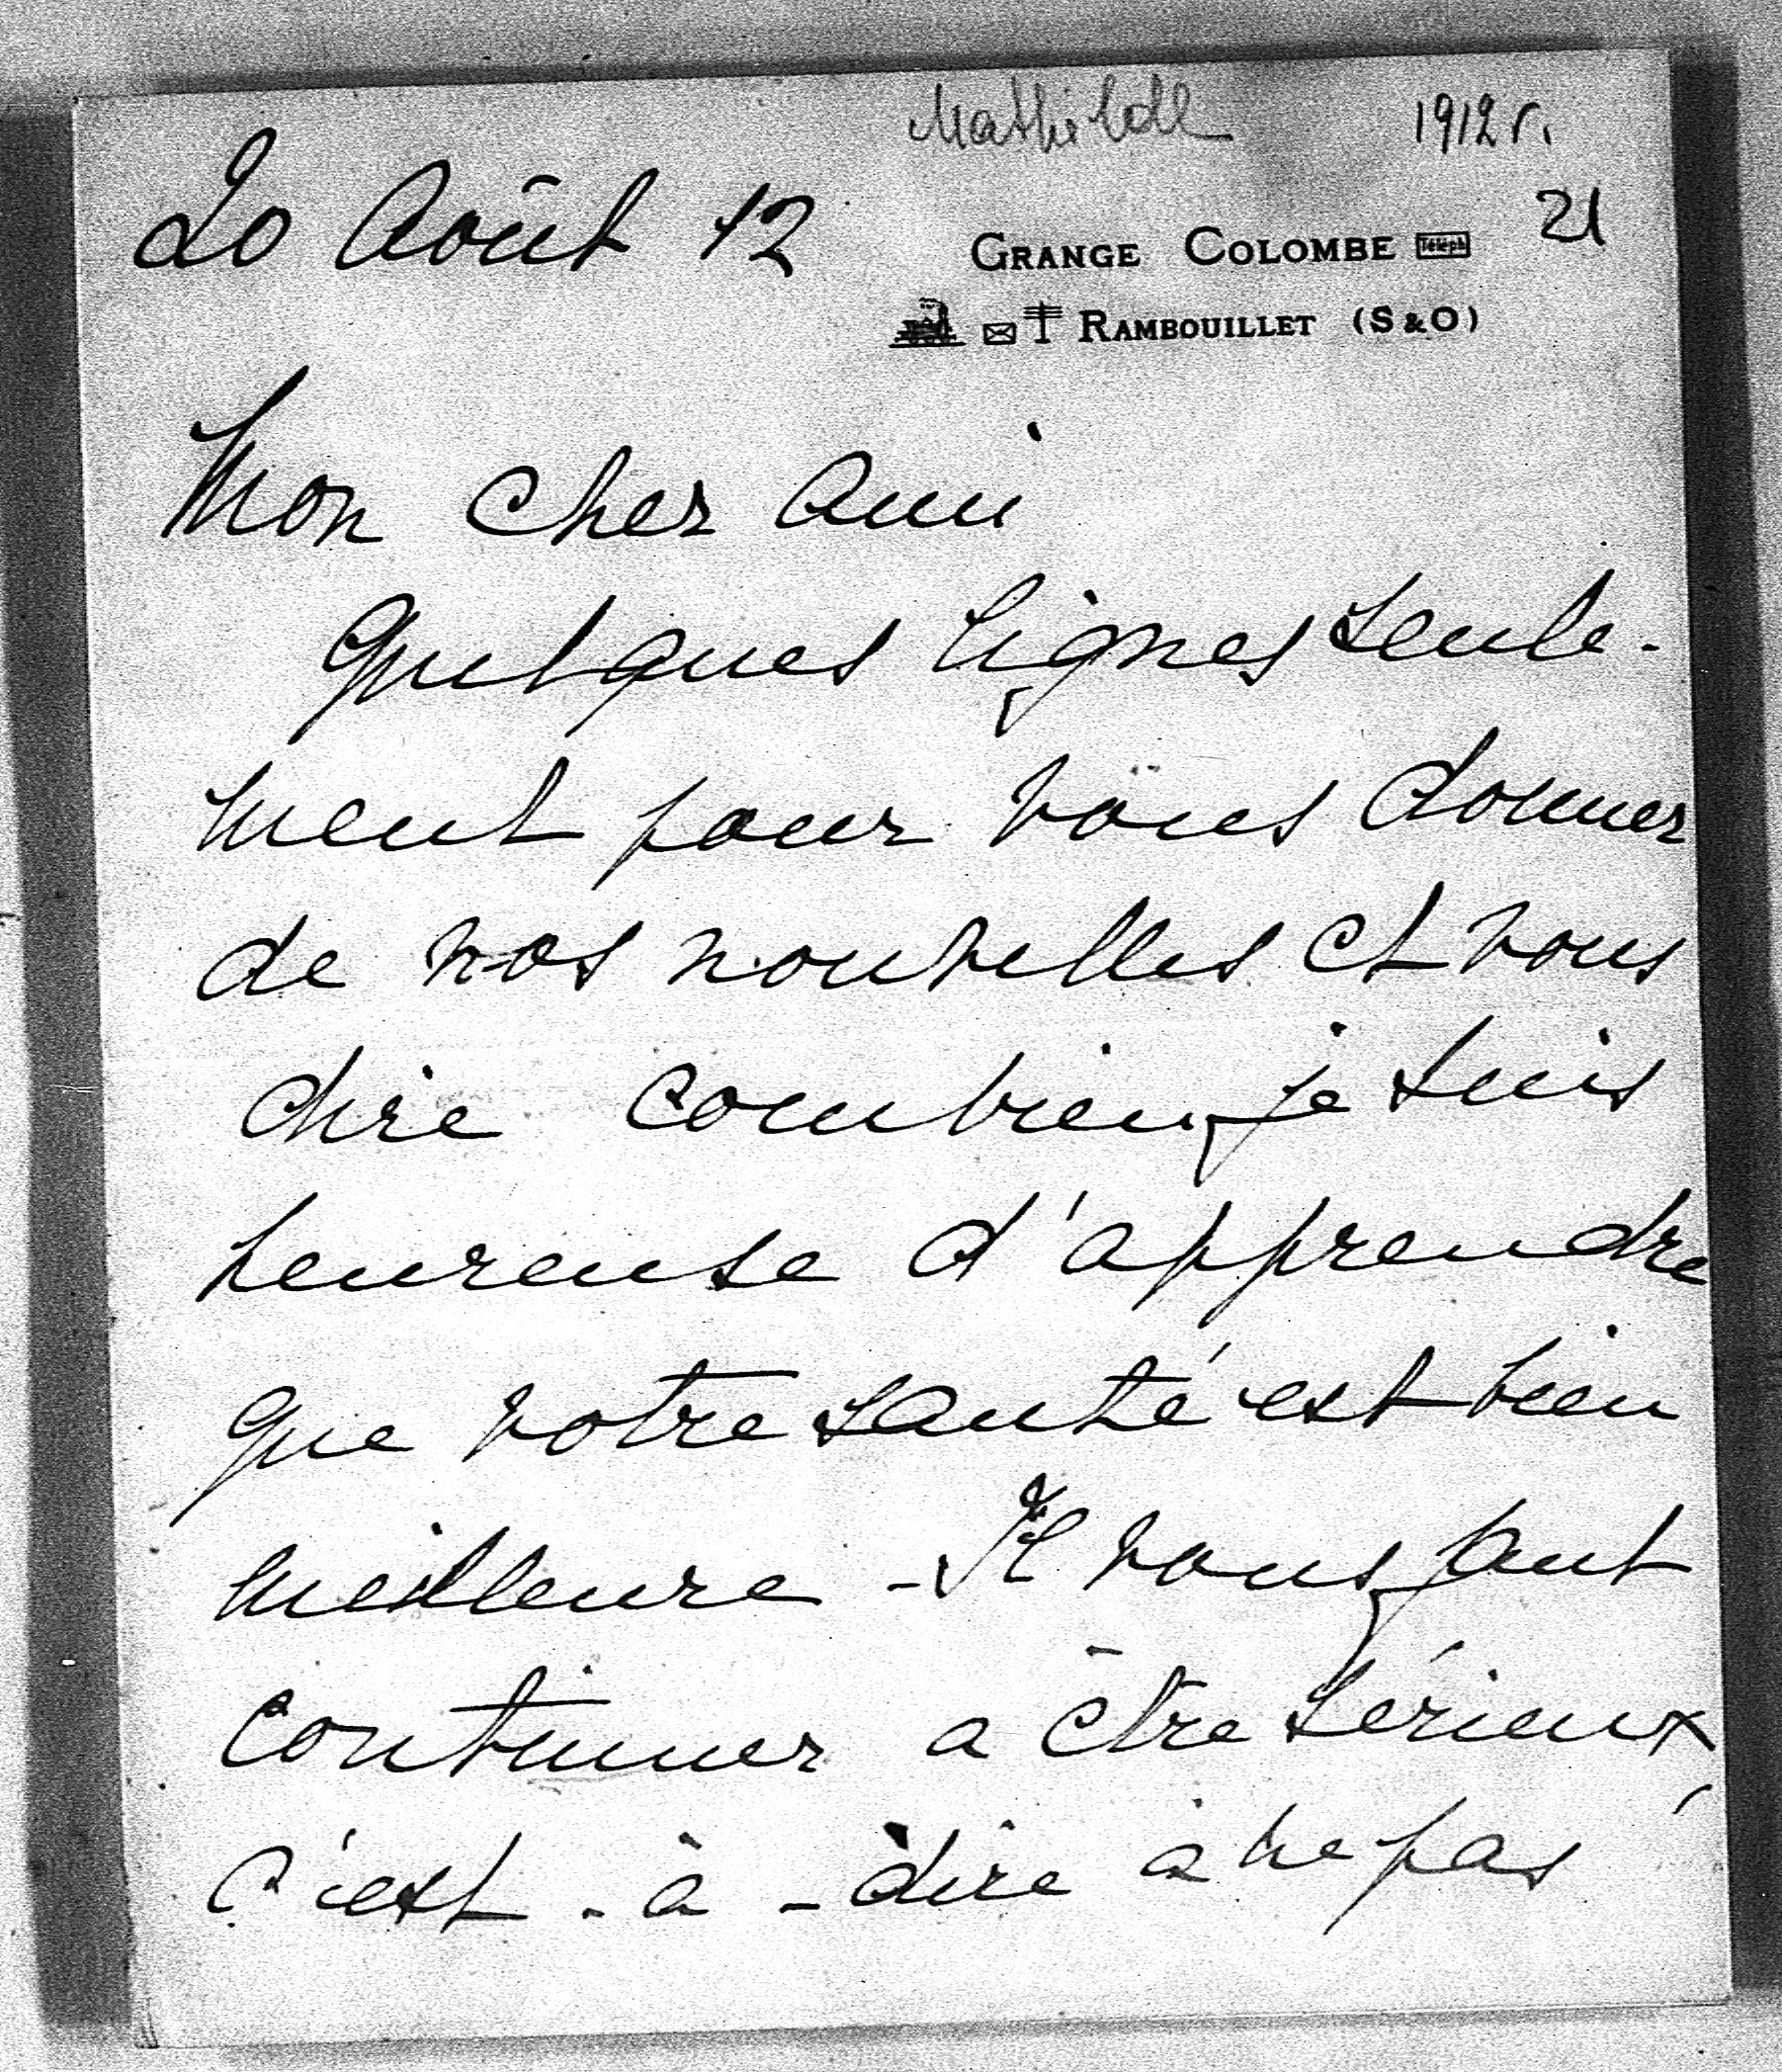 Mathilde 1912 r.
20 Août 12
21
GRANGE COLOMBE Téléph
RAMBOUILLET (S & O)
Mon cher ami
Quelques lignes seule-
ment pour vous donner
de nos nouvelles et vous
dire combien je suis
heureuse d'apprendre
que votre santé est bien
meilleure - Il vous faut
continuer a être sérieux,
c'est-à-dire à ne pas